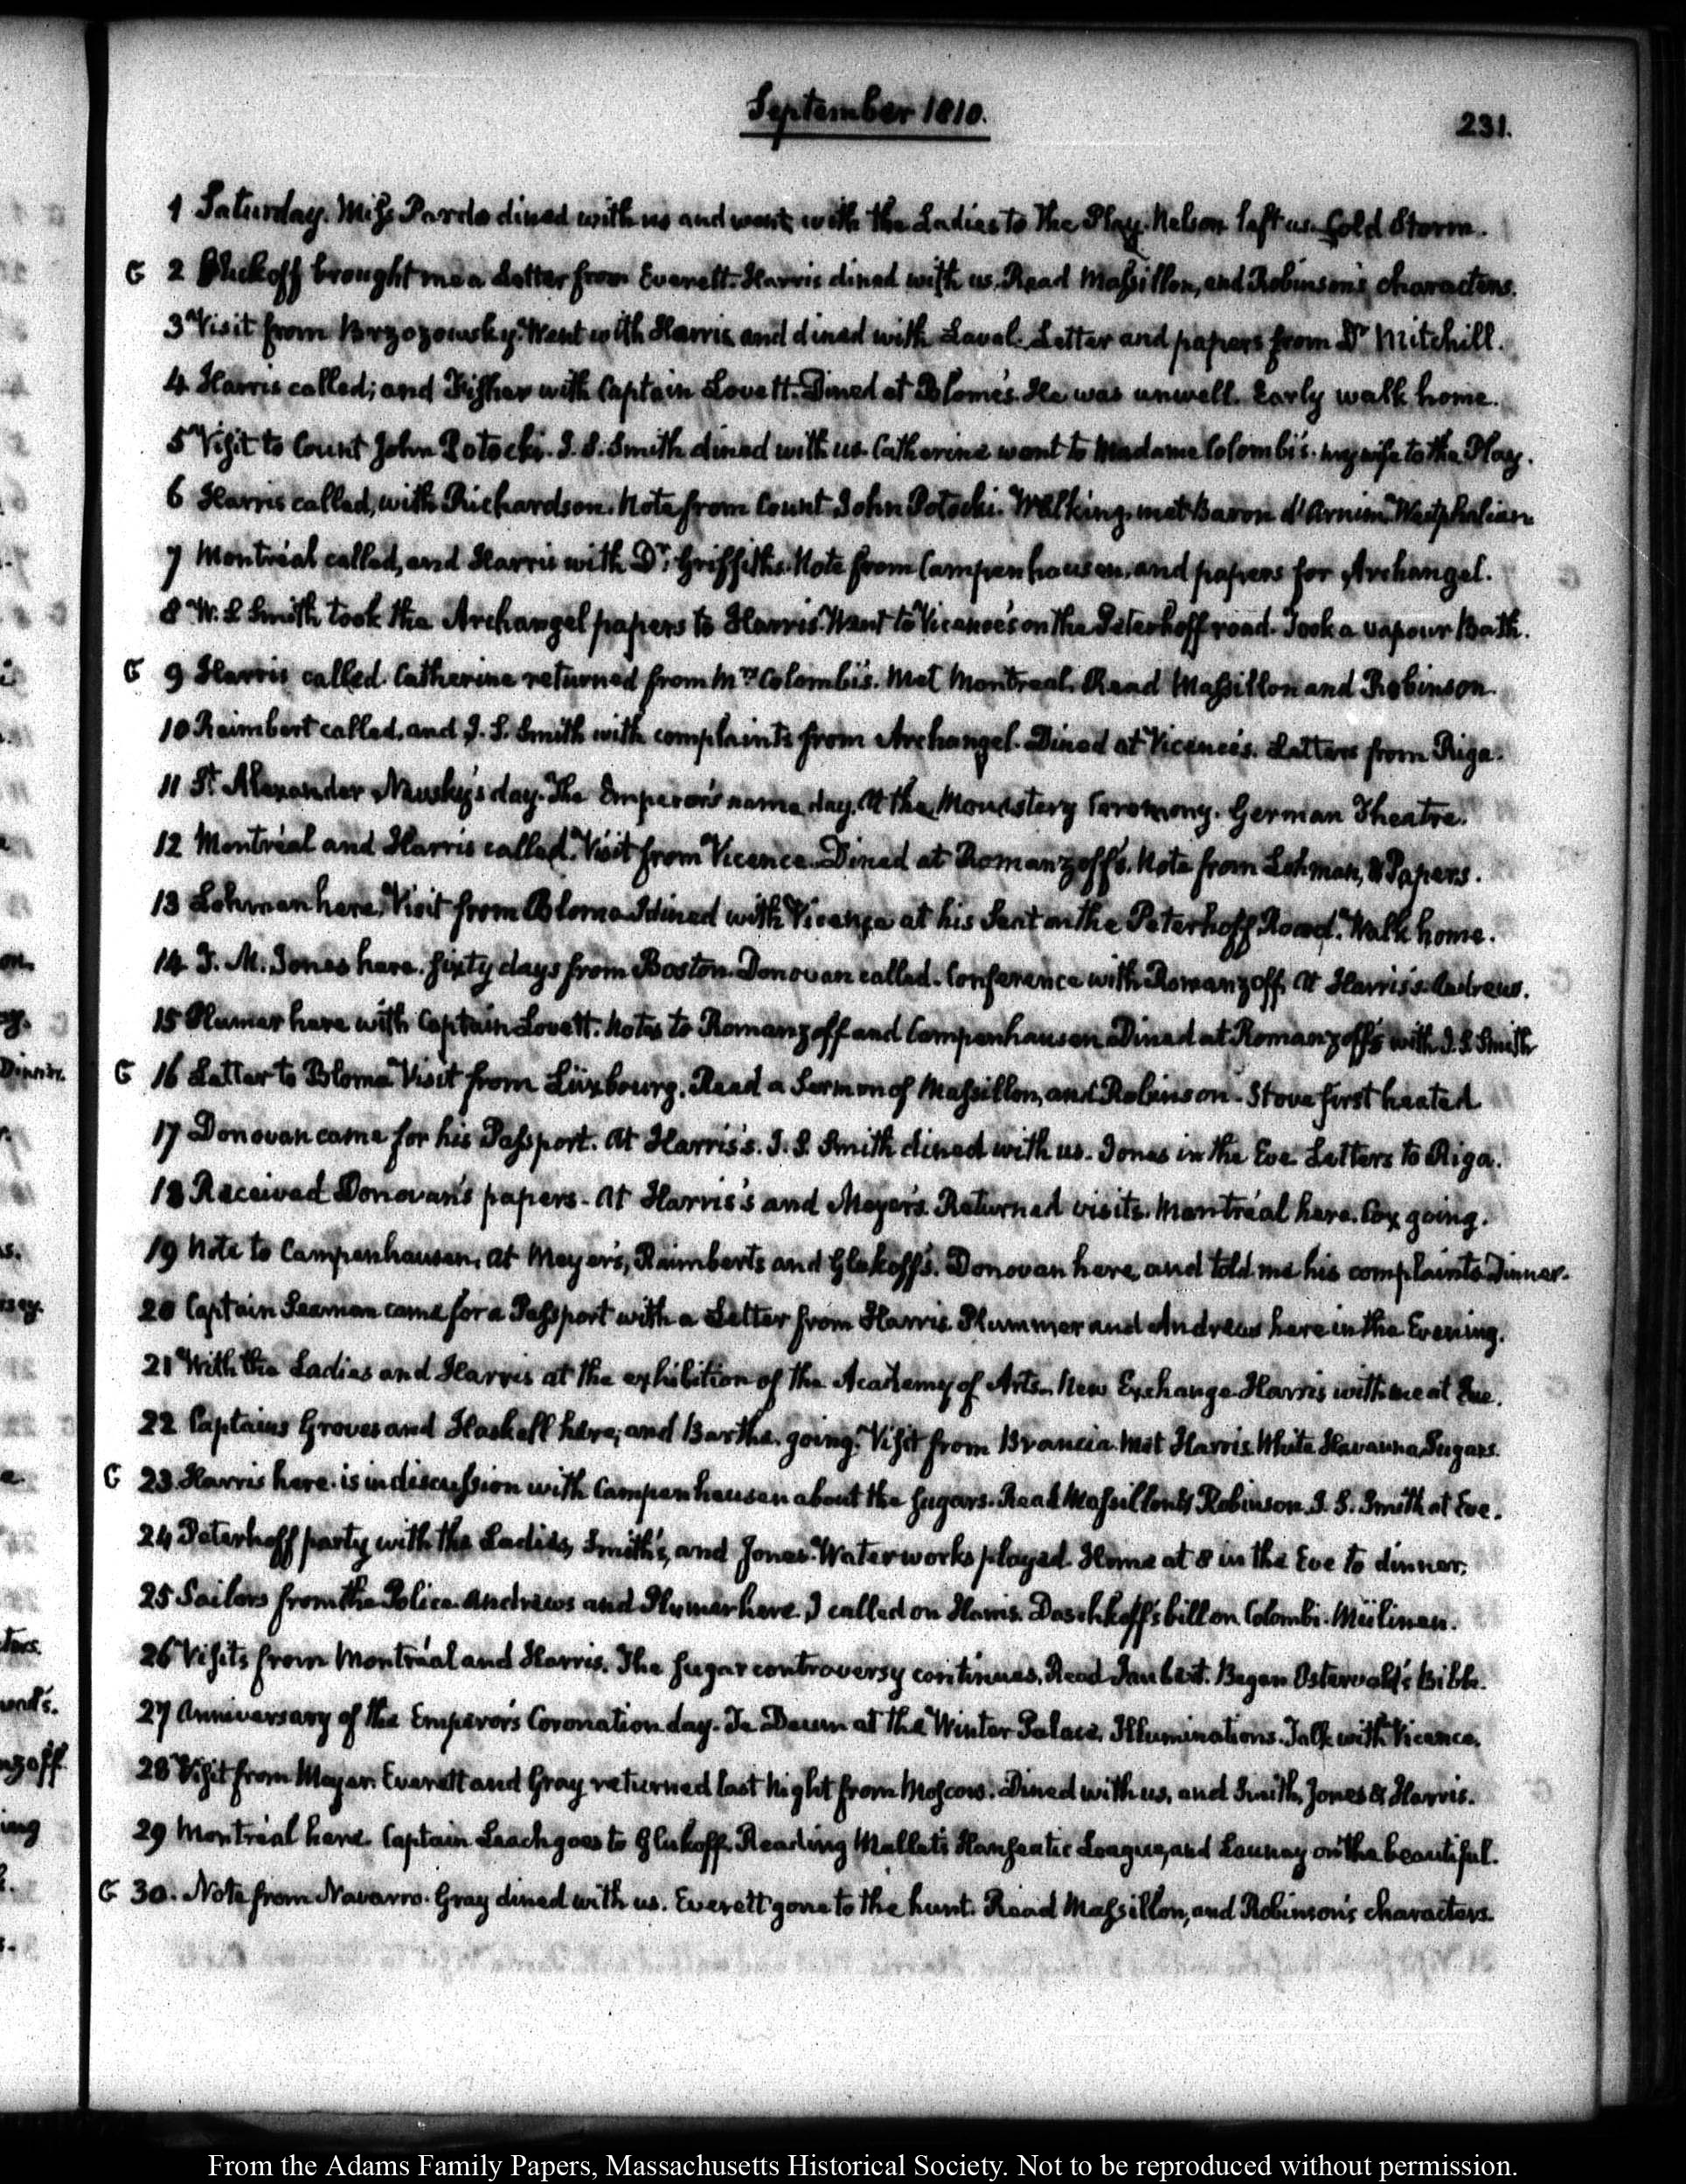 September 1810.
231.
1 Saturday. Miss Pardo dined with us and went with the Ladies to the Play. Nelson left us. Cold Storm.
G 2 Glukoff brought me a Letter from Everett. Harris dined with us. Read Massillon, and Robinson's characters.
3 Visit from Brzozowsky. Went with Harris and dined with Laval. Letter and papers from Dr Mitchill.
4 Harris called; and Fisher with Captain Lovett. Dined at Blome's. He was unwell. Early walk home.
5 Visit to Count John Potocki. J. S. Smith dined with us. Catherine went to Madame Colombi's. my wife to the Play.
6 Harris called, with Richardson. Note from Count John Potocki. Walking, met Baron d'Arnim. Westphalian
7 Montréal called, and Harris with Dr Griffiths. Note from Campenhausen, and papers for Archangel.
8 W. S. Smith took the Archangel papers to Harris. Went to Vicence's on the Peterhoff road. Took a vapour Bath.
G 9 Harris called. Catherine returned from Mrs Colombi's. Met Montreal. Read Massillon and Robinson.
10 Raimbert called, and J. S. Smith with complaints from Archangel. Dined at Vicence's. Letters from Riga.
11 St Alexander Newsky's day. The Emperor's name day. At the Monastery Ceremony. German Theatre.
12 Montréal and Harris called. Visit from Vicence. Dined at Romanzoff's. Note from Lohman, & Papers.
13 Lohman here. Visit from Blome. I dined with Vicence at his Seat on the Peterhoff Road. Walk home.
14 T. M. Jones here. sixty days from Boston. Donovan called. Conference with Romanzoff. At Harris's. Andrews.
15 Plumer here with Captain Lovett. Notes to Romanzoff and Campenhausen. Dined at Romanzoff's with J. S. Smith
G 16 Letter to Blome. Visit from Lüxbourg. Read a Sermon of Massillon, and Robinson. Stove first heated.
17 Donovan came for his Passport. At Harris's. J. S. Smith dined with us. Jones in the Eve. Letters to Riga.
18 Received Donovan's papers. At Harris's and Meyer's. Returned visits. Montréal here. Cox going.
19 Note to Campenhausen. At Meyer's, Raimbert's and Glukoff's. Donovan here, and told me his complaints. Dinner.
20 Captain Seaman came for a Passport with a Letter from Harris. Plummer and Andrews here in the Evening.
21 With the Ladies and Harris at the exhibition of the Academy of Arts. New Exchange. Harris with me at Eve.
22 Captains Groves and Haskell here; and Barthe. going. Visit from Brancia. Met Harris. White Havanna Sugars.
G 23 Harris here. is in discussion with Campenhausen about the sugars. Read Massillon & Robinson. J. S. Smith at Eve.
24 Peterhoff party with the Ladies, Smith's, and Jones. Water works played. Home at 8 in the Eve to dinner.
25 Sailors from the Police. Andrews and Plumer here. I called on Harris. Daschkoff's bill on Colombi. Müllinen.
26 Visits from Montréal and Harris. The sugar controversy continues. Read Jaubert. Began Ostervald's Bible.
27 Anniversary of the Emperor's Coronation day. Te Deum at the Winter Palace. Illuminations. Talk with Vicence.
28 Visit from Meyer. Everett and Gray returned last Night from Moscow. Dined with us, and Smith, Jones & Harris.
29 Montréal here. Captain Leach goes to Glukoff. Reading Mallet's Hanseatic League, and Launay on the beautiful.
G 30. Note from Navarro. Gray dined with us. Everett gone to the hunt. Read Massillon, and Robinson's characters.
From the Adams Family Papers, Massachusetts Historical Society. Not to be reproduced without permission.